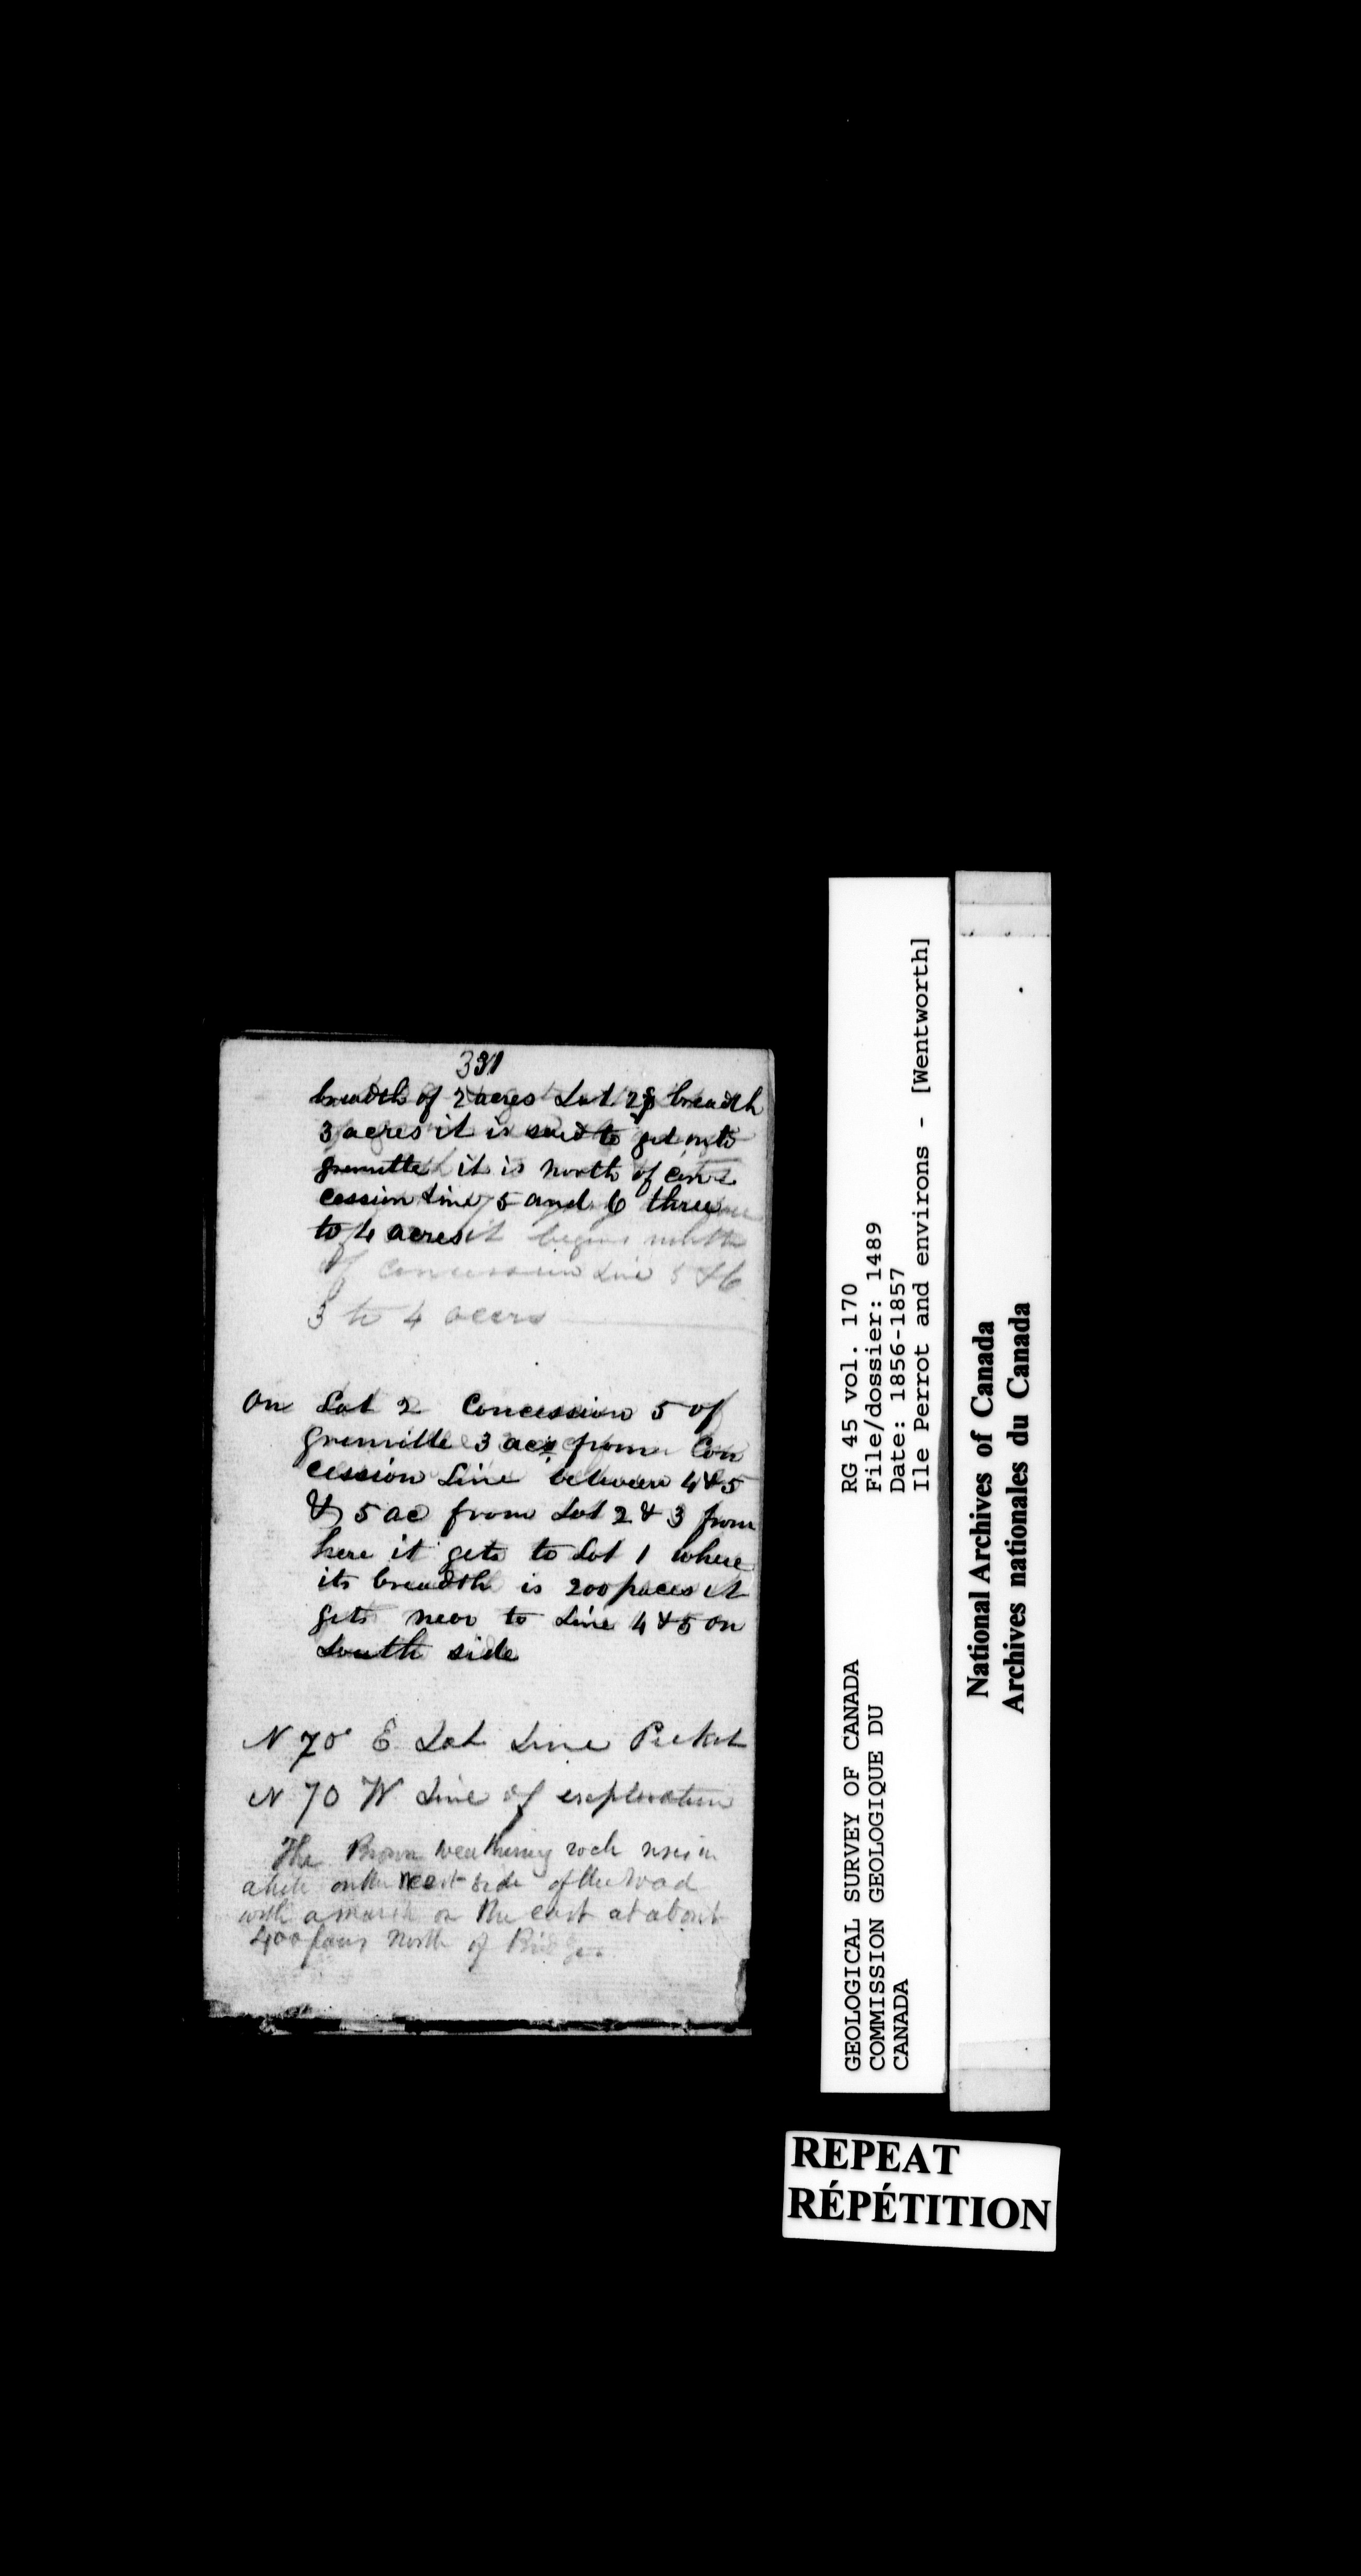 331
breadth of 2 acres Lot 2 breadth
3 acres it is said to get into
grenville it is north of con
cession Line 5 and 6 three
to 4 acres it begins north
of concession Line 5 & 6
3 to 4 acers
On Lot 2 Concession 5 of
grenville 3 acs from Con
cession Line between 4 & 5
& 5 ac from Lot 2 & 3 from
here it gets to Lot 1 where
its breadth is 200 paces it
gets near to Line 4 & 5 on
South side
N 70° E Lot Line Picket
N 70 W Line of exploration
The Brown weathering rock rises in
on the west side of the road
with a marsh on the east at about
400 paces North of Bridge
RG 45 vol. 170
File/dossier: 1489
Date: 1856-1857
Ile Perrot and environs - [Wentworth]
GEOLOGICAL SURVEY OF CANADA
COMMISSION GEOLOGIQUE DU
CANADA
National Archives of Canada
Archives nationales du Canada
REPEAT
RÉPÉTITION